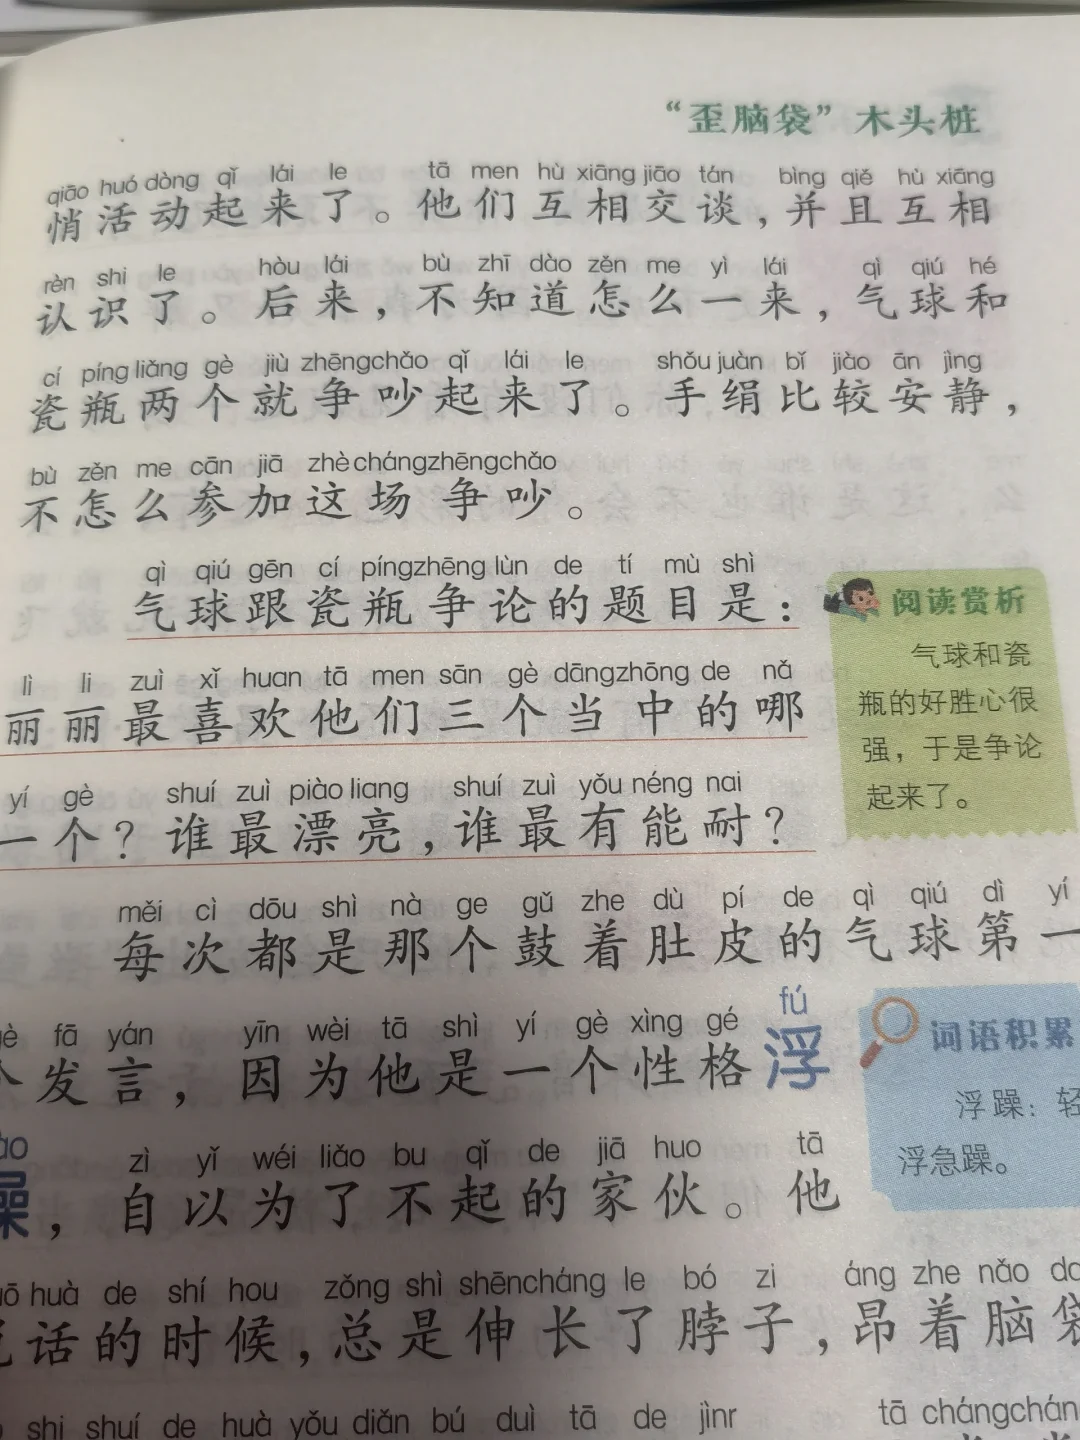 “歪脑袋”木头桩
qiāo huó dòng qǐ lái le tā men hù xiāng jiāo tán bìng qiě hù xiāng
悄活动起来了。他们互相交谈，并且互相
rèn shi le hòu lái bù zhī dào zěn me yì lái qì qiú hé
认识了。后来，不知道怎么一来，气球和
cí píng liǎng gè jiù zhēng chǎo qǐ lái le shǒu juàn bǐ jiào ān jìng
瓷瓶两个就争吵起来了。手绢比较安静，
bù zěn me cān jiā zhè cháng zhēng chǎo
不怎么参加这场争吵。
qì qiú gēn cí píng zhēng lùn de tí mù shì
气球跟瓷瓶争论的题目是：
lì li zuì xǐ huan tā men sān gè dāng zhōng de nǎ
丽丽最喜欢他们三个当中的哪
yí gè shuí zuì piào liang shuí zuì yǒu néng nai
一个？谁最漂亮，谁最有能耐？
阅读赏析
气球和瓷
瓶的好胜心很
强，于是争论
起来了。
měi cì dōu shì nà ge gǔ zhe dù pí de qì qiú dì yí
每次都是那个鼓着肚皮的气球第一
fā yán yīn wèi tā shì yí gè xìng gé fú
个发言，因为他是一个性格浮
zì yǐ wéi liǎo bu qǐ de jiā huo tā
躁，自以为了不起的家伙。他
词语积累
浮躁：轻
浮急躁。
huà de shí hou zǒng shì shēn cháng le bó zi áng zhe nǎo
说话的时候，总是伸长了脖子，昂着脑袋
shi shuí de huà yǒu diǎn bú duì tā de jìnr tā cháng cháng